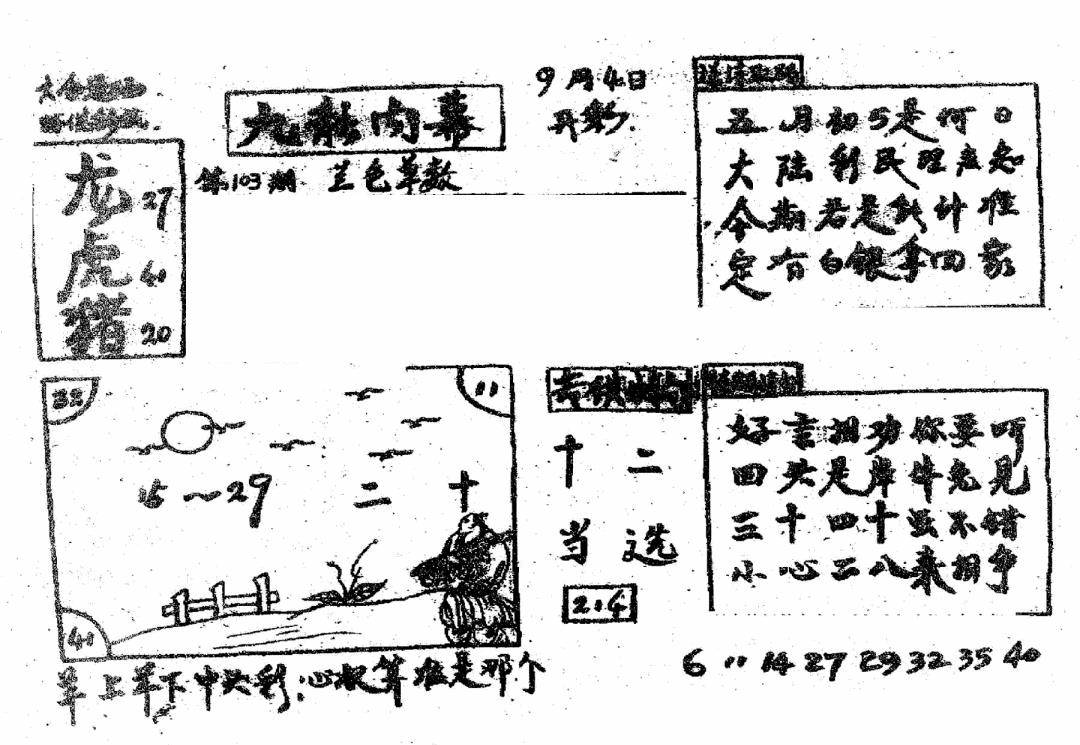 九龍内幕
9月4日
开彩.
第103期 兰色单数
龙 27
虎 41
猪 20
五月初5是何日
大陆利民理应知
今期若是能计准
定有白银拿回家
32
11
15~29 二十
41
羊上羊下中头彩:心水算准是那个
十二
当选
2:4
好言相劝你要听
回头是岸牛兔见
三十四十虽不错
小心二八来相争
6 11 14 27 29 32 35 40